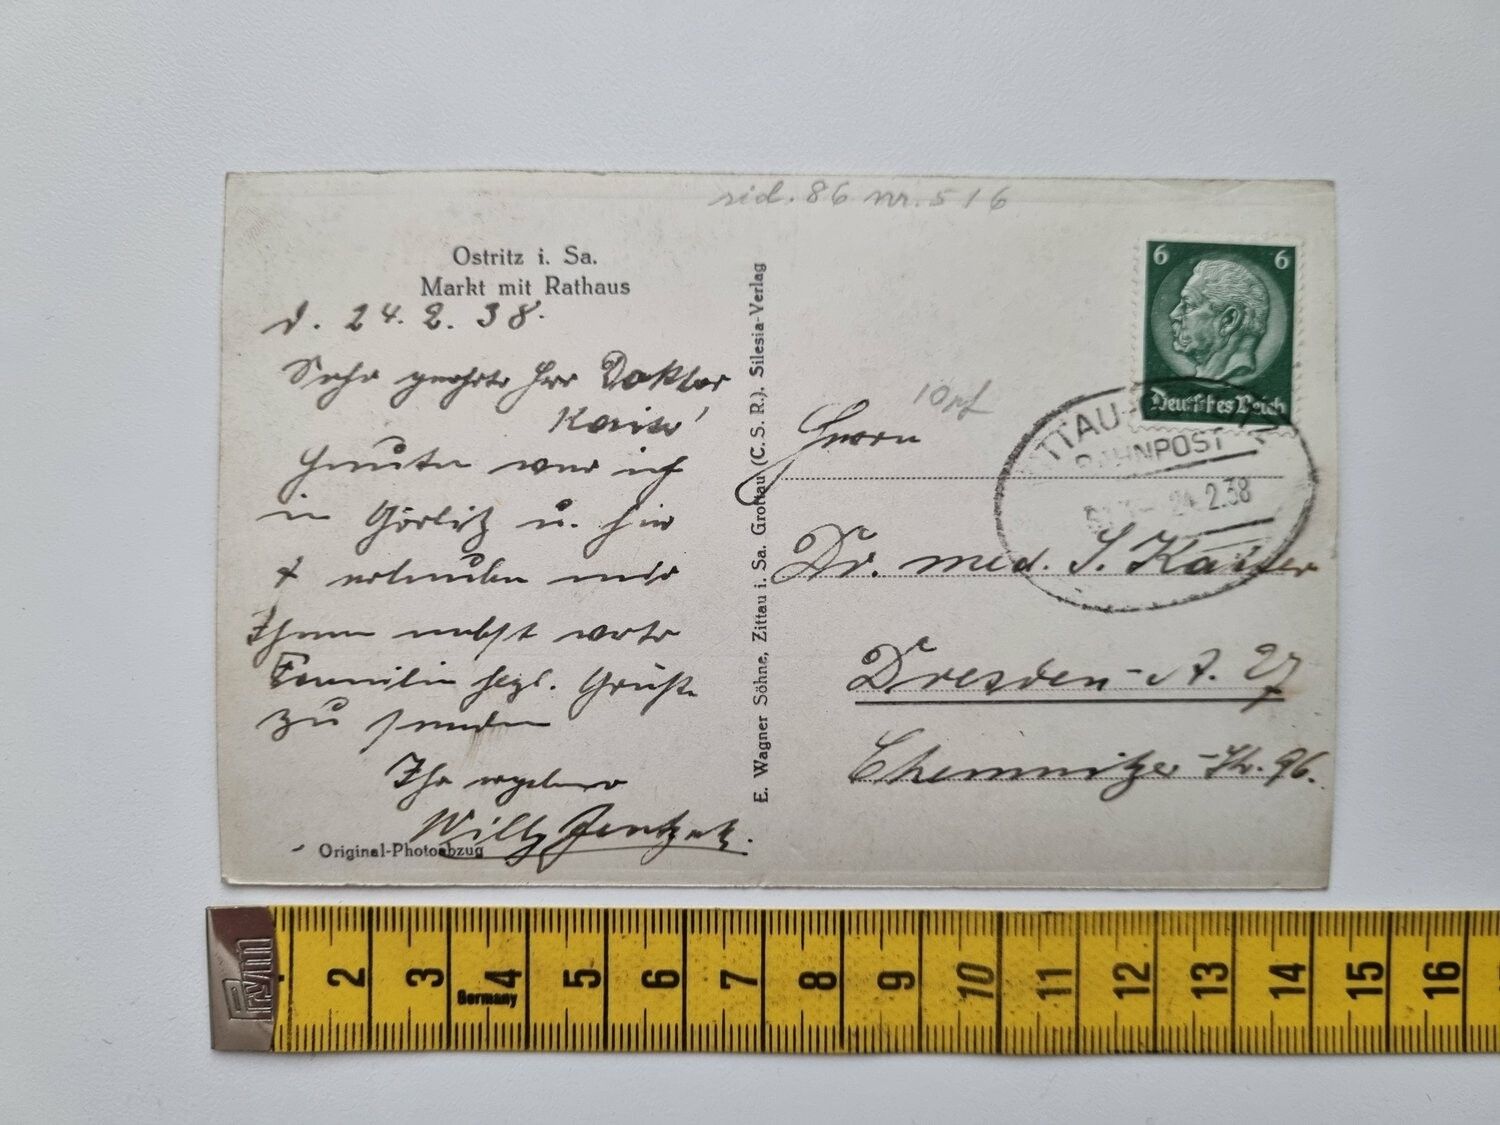 rid. 86 nr. 516
Ostritz i. Sa.
Markt mit Rathaus
d. 24. 2. 38.
Sehr geehrter Herr Doktor
Heute war ich
in Görlitz u. hier
+ erlaube mir
Ihnen nebst werter
Familie hrzl. Grüße
zu senden
Ihr ergebener
Willy
Original-Photoabzug
E. Wagner Söhne, Zittau i. Sa. Grottau (C. S. R.). Silesia-Verlag
6 6
Deutsches Reich
10 pf
TTAU-
BAHNPOST
24.2.38
Herrn
Dr. med. S. Kaiser
Dresden-A. 27
Chemnitzer-Str. 96.
Prym
2 3 4 5 6 7 8 9 10 11 12 13 14 15 16
Germany